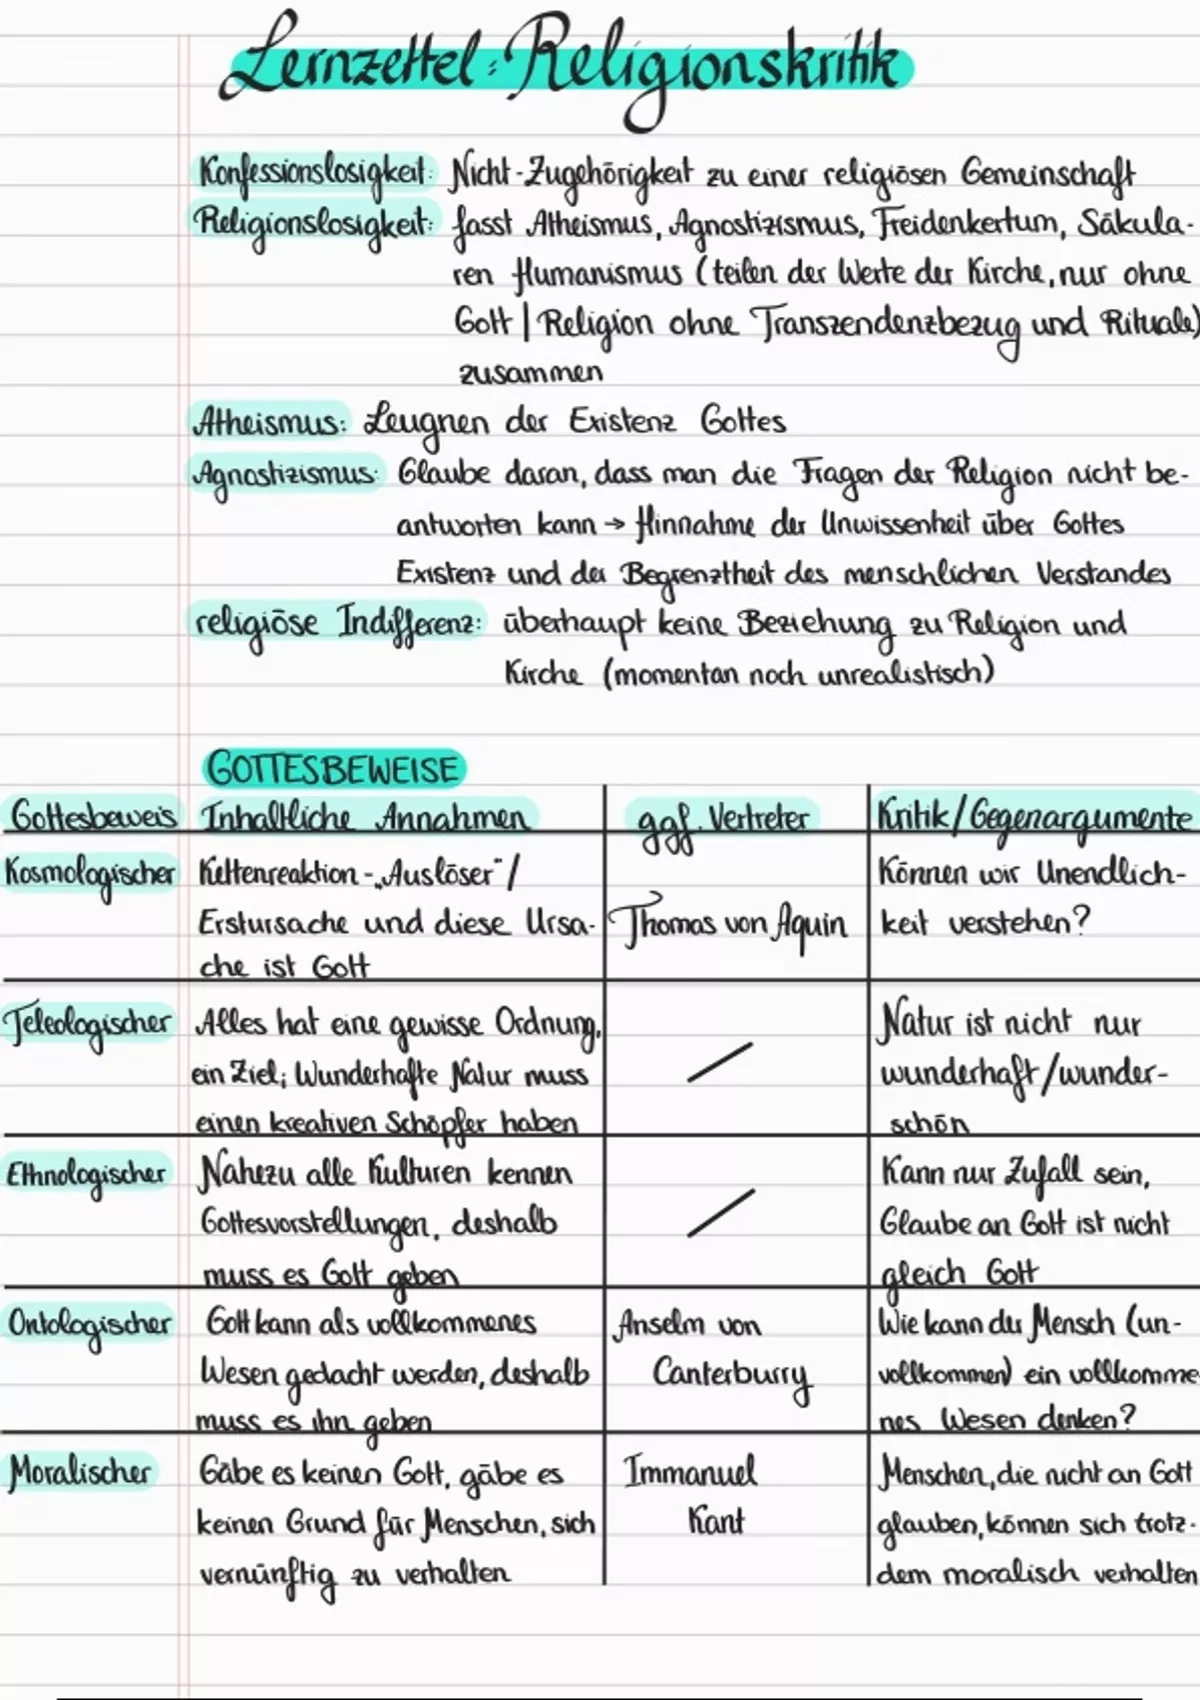 Lernzettel: Religionskritik
Konfessionslosigkeit: Nicht-Zugehörigkeit zu einer religiösen Gemeinschaft
Religionslosigkeit: fasst Atheismus, Agnostizismus, Freidenkertum, Säkula-
ren Humanismus (teilen der Werte der Kirche, nur ohne
Gott | Religion ohne Transzendenzbezug und Rituale)
zusammen
Atheismus: Leugnen der Existenz Gottes
Agnostizismus: Glaube daran, dass man die Fragen der Religion nicht be-
antworten kann → Hinnahme der Unwissenheit über Gottes
Existenz und der Begrenztheit des menschlichen Verstandes
religiöse Indifferenz: überhaupt keine Beziehung zu Religion und
Kirche (momentan noch unrealistisch)
GOTTESBEWEISE
Gottesbeweis Inhaltliche Annahmen ggf. Vertreter Kritik/Gegenargumente
Kosmologischer Kettenreaktion - „Auslöser"/ Können wir Unendlich-
Erstursache und diese Ursa- Thomas von Aquin keit verstehen?
che ist Gott
Teleologischer Alles hat eine gewisse Ordnung, Natur ist nicht nur
ein Ziel; Wunderhafte Natur muss / wunderhaft/wunder-
einen kreativen Schöpfer haben schön
Ethnologischer Nahezu alle Kulturen kennen Kann nur Zufall sein,
Gottesvorstellungen, deshalb / Glaube an Gott ist nicht
muss es Gott geben gleich Gott
Ontologischer Gott kann als vollkommenes Anselm von Wie kann der Mensch (un-
Wesen gedacht werden, deshalb Canterburry vollkommen) ein vollkomme-
muss es ihn geben nes Wesen denken?
Moralischer Gäbe es keinen Gott, gäbe es Immanuel Menschen, die nicht an Gott
keinen Grund für Menschen, sich Kant glauben, können sich trotz-
vernünftig zu verhalten dem moralisch verhalten